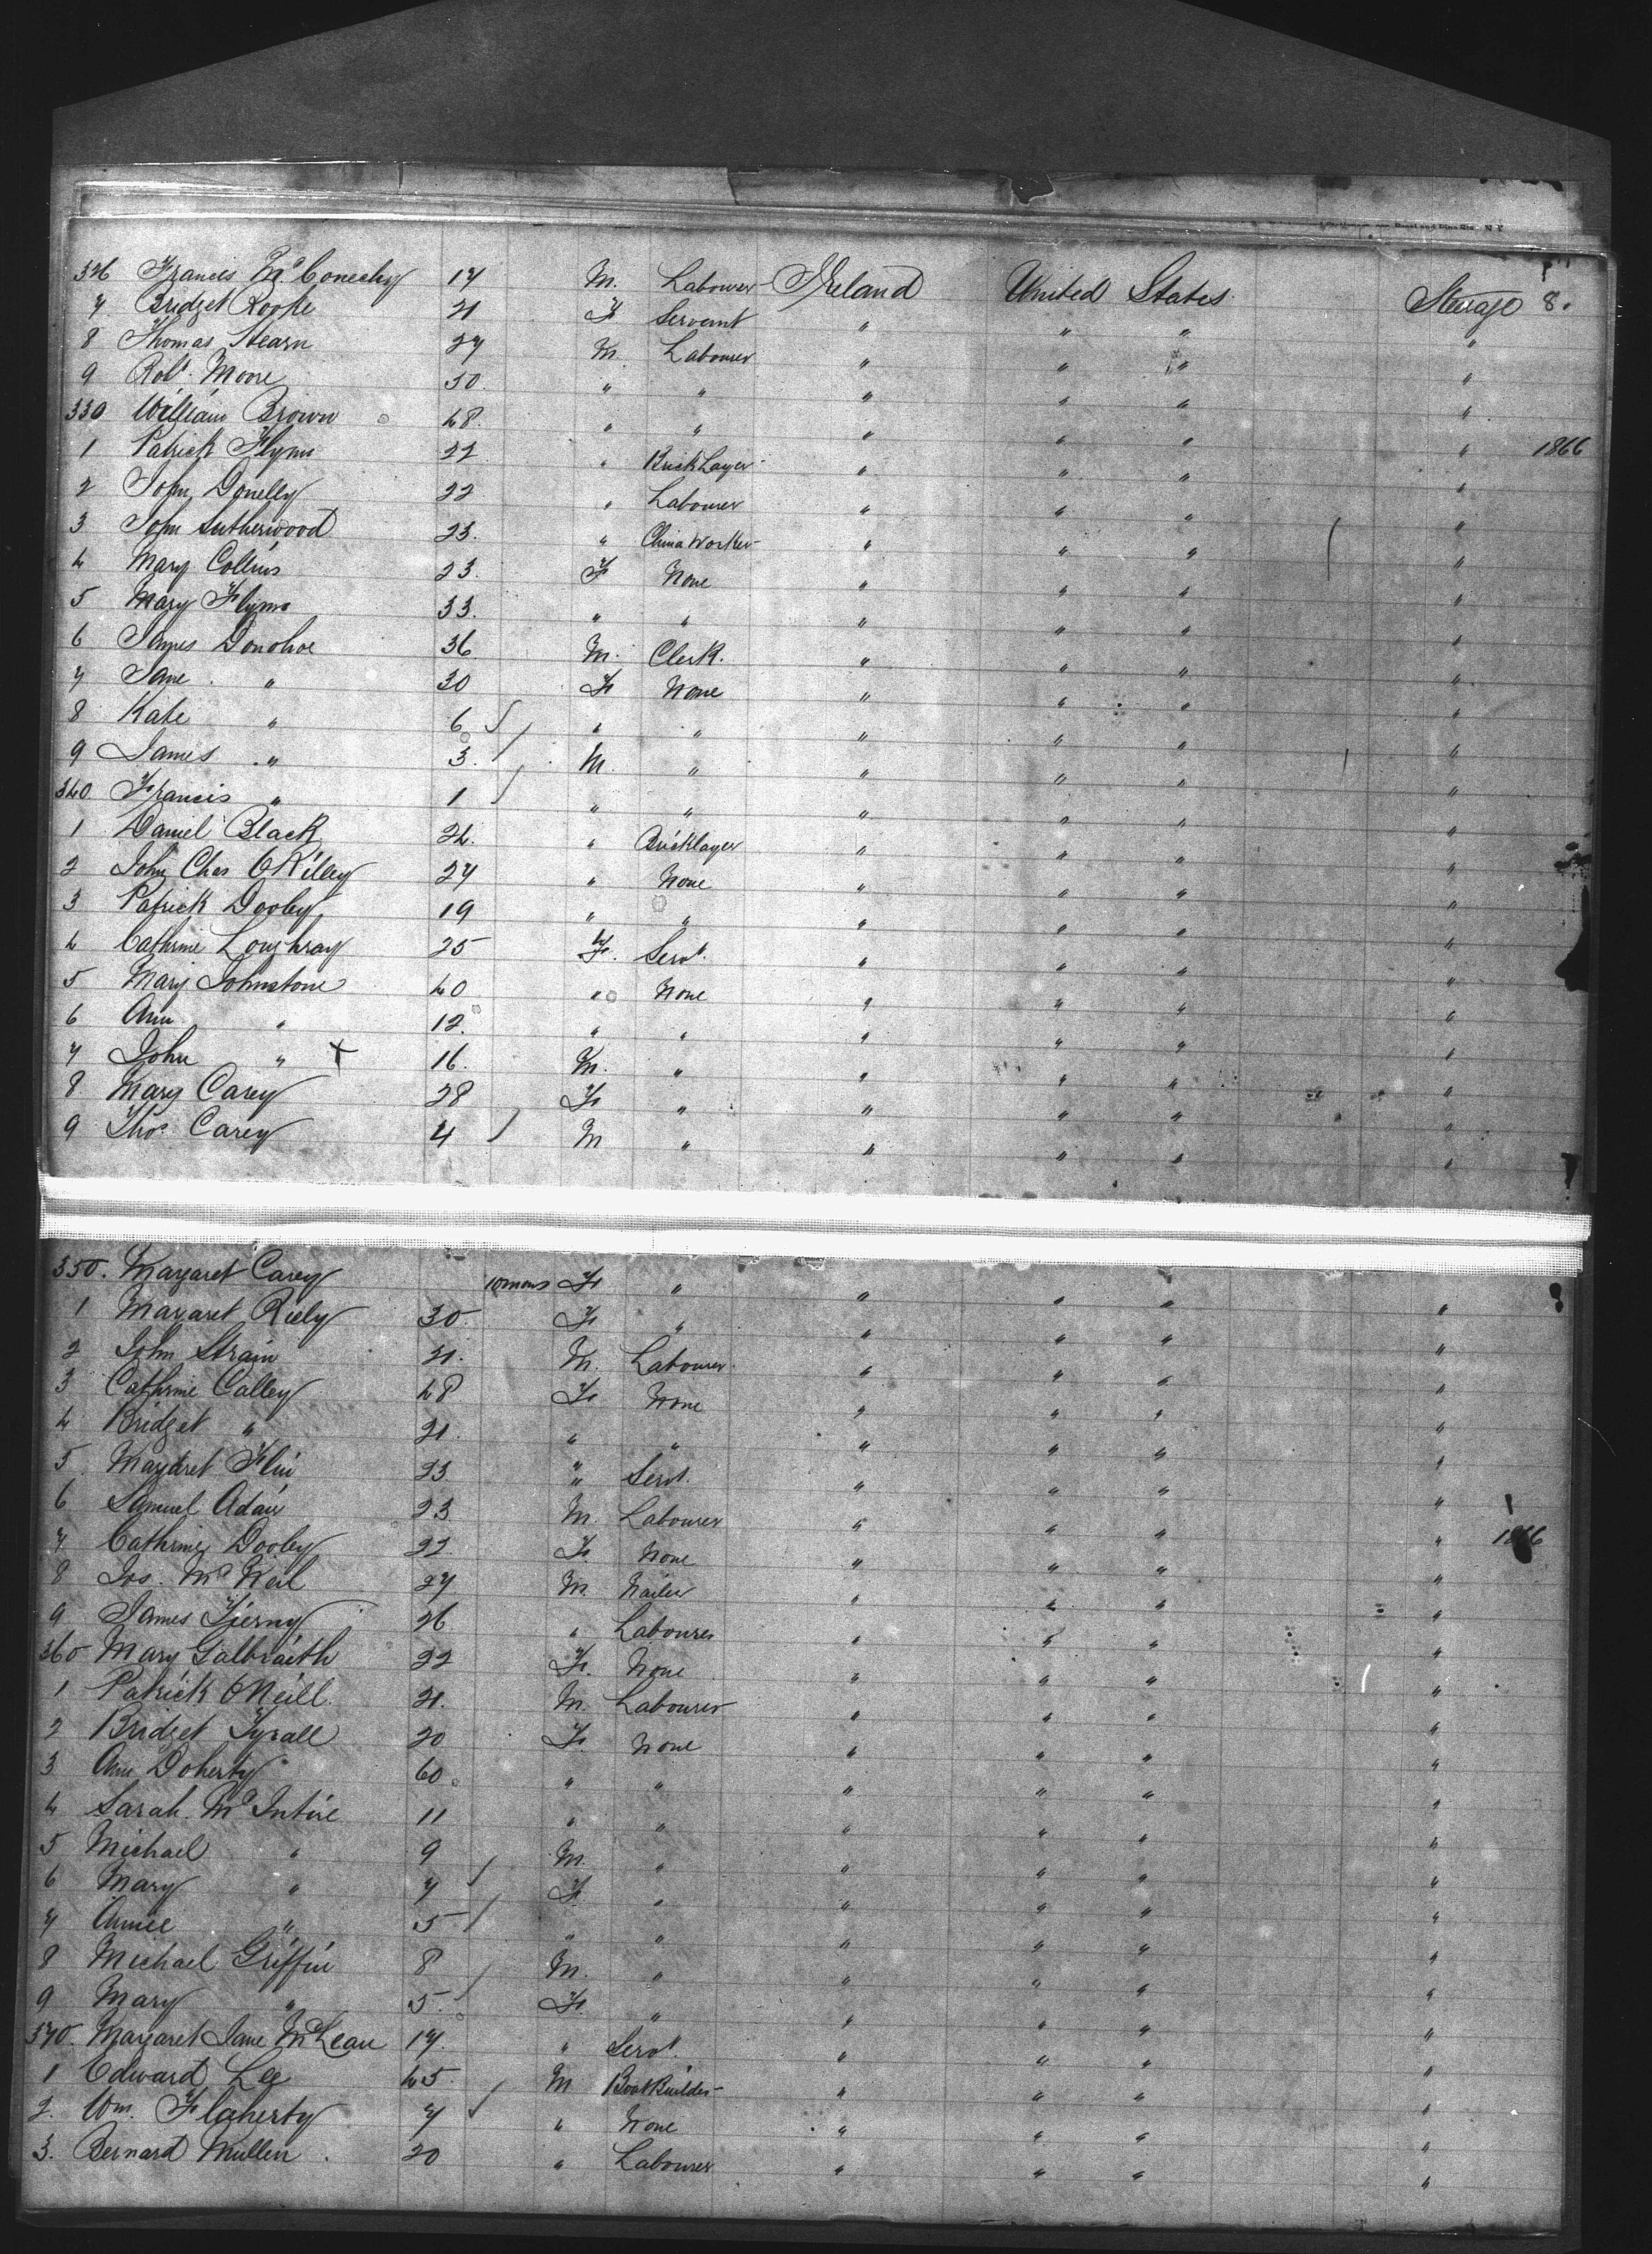 326 Francis McConechy 17 M. Labourer Ireland United States Steerage 8.
7 Bridget Rooke 21 F Servant " " " "
8 Thomas Hearn 27 M. Labourer " " " "
9 Robt. Moore 50. " " " " " "
330 William Brown 48. " " " " " "
1 Patrick Flynn 22 " BrickLayer " " " " 1866
2 John Donelly 22 " Labourer " " " "
3 John Sutherwood 23. " China Worker " " " "
4 Mary Collins 23. F None " " " "
5 Mary Flynn 33. " " " " " "
6 James Donohoe 36 M. Clerk. " " " "
7 Jane " 30 F None " " " "
8 Kate " 6 " " " " " "
9 James " 3. M. " " " " "
340. Francis " 1 " " " " " "
1 Daniel Black 24. " Bricklayer " " " "
2 John Chas ORilley 27 " None " " " "
3 Patrick Dooley 19 " " " " " "
4 Cathrine Loughray 25 F. Servt. " " " "
5 Mary Johnstone 40 " None " " " "
6 Ann " 12. " " " " " "
7 John " X 16. M. " " " " "
8. Mary Carey 28 F " " " " "
9 Thos. Carey 4 M " " " " "
350. Margaret Carey 10 mons F " " " " "
1 Margaret Riely 30. F " " " " "
2 John Strain 21. M. Labourer " " " "
3 Cathrine Calley 48 F None " " " "
4 Bridget " 21. " " " " " "
5 Margaret Flin 23. " Servt. " " " "
6 Samuel Adair 23. M. Labourer " " " "
7 Cathrine Dooley 22. F. None " " " " 1866
8 Jos. McNeil 27 M. Nailer " " " "
9 James Tierny 26 " Labourer " " " "
360 Mary Galbraith 22 F. None " " " "
1 Patrick ONeill. 21. M. Labourer " " " "
2 Bridget Tyrall 20 F. None " " " "
3 Ann Doherty 60 " " " " " "
4 Sarah McIntire 11 " " " " " "
5 Michael " 9 M. " " " " "
6 Mary " 7 F " " " " "
7 Annie " 5 " " " " " "
8 Michael Griffin 8 M. " " " " "
9 Mary " 5. F. " " " " "
370. Margaret Jane McLean 17. " Servt. " " " "
1 Edward Lee 45. M BootBuilder " " " "
2. Wm. Flaherty 7 " None " " " "
3. Bernard Mullen. 20 " Labourer " " " "